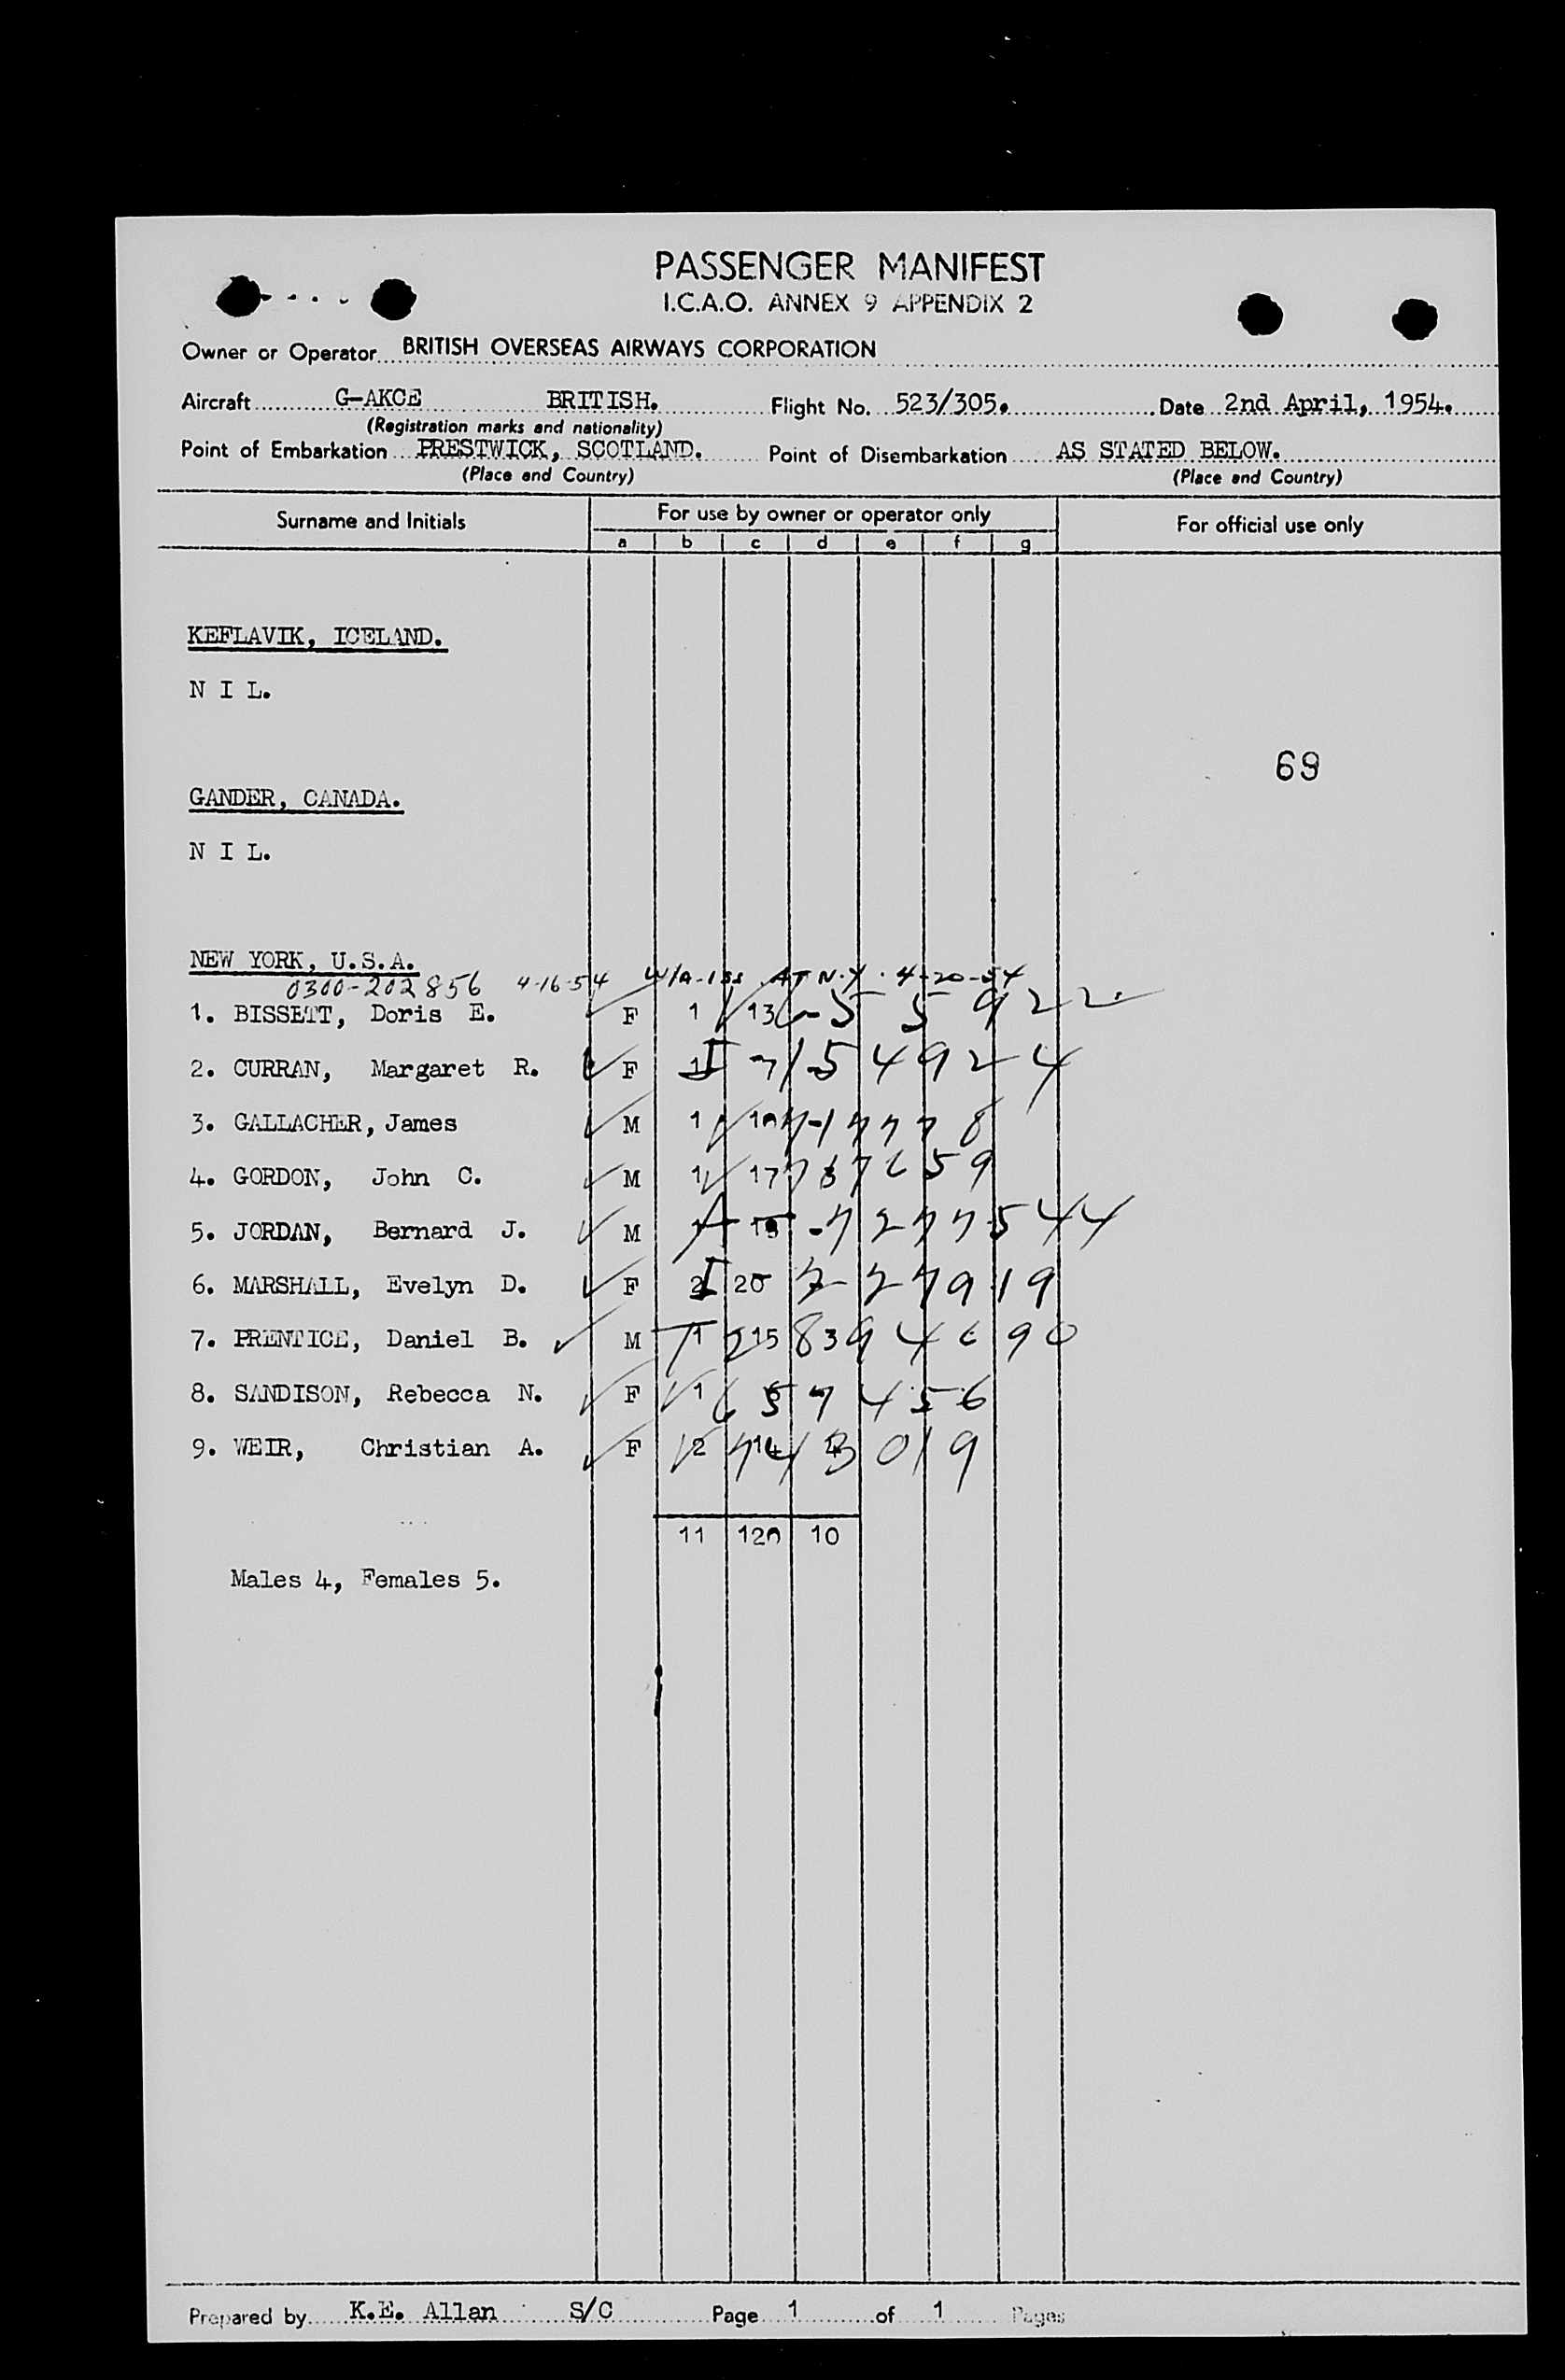 PASSENGER MANIFEST
I.C.A.O. ANNEX 9 APPENDIX 2
Owner or Operator BRITISH OVERSEAS AIRWAYS CORPORATION
Aircraft G-AKCE BRITISH. Flight No. 523/305. Date 2nd April, 1954.
(Registration marks and nationality)
Point of Embarkation PRESTWICK, SCOTLAND. Point of Disembarkation AS STATED BELOW.
(Place and Country) (Place and Country)
Surname and Initials For use by owner or operator only For official use only
a b c d e f g
KEFLAVIK, ICELAND.
N I L.
69
GANDER, CANADA.
N I L.
NEW YORK, U.S.A.
0300-202856 4-16-54 W/A-iss AT N.Y. 4-20-54
1. BISSETT, Doris E. F 1 13
2. CURRAN, Margaret R. F 1
3. GALLACHER, James M 1
4. GORDON, John C. M 1 17
5. JORDAN, Bernard J. M
6. MARSHALL, Evelyn D. F 2 20
7. PRENTICE, Daniel B. M 1 15
8. SANDISON, Rebecca N. F 1
9. WEIR, Christian A. F 2 14
11 120 10
Males 4, Females 5.
Prepared by K.E. Allan S/C Page 1 of 1 Pages